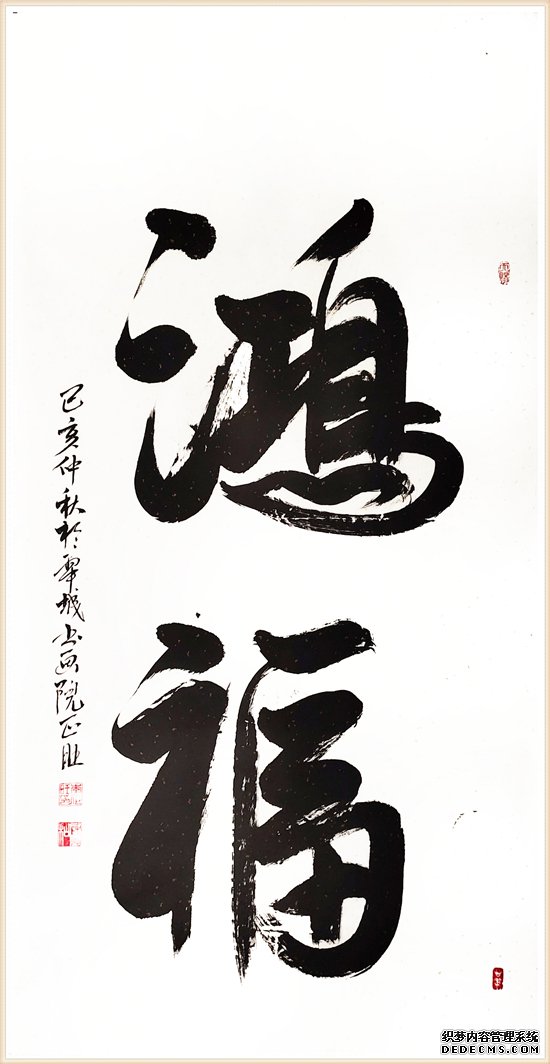 鸿福
己亥仲秋於翠城书画院正旺
织梦内容管理系统
DEDECMS.COM